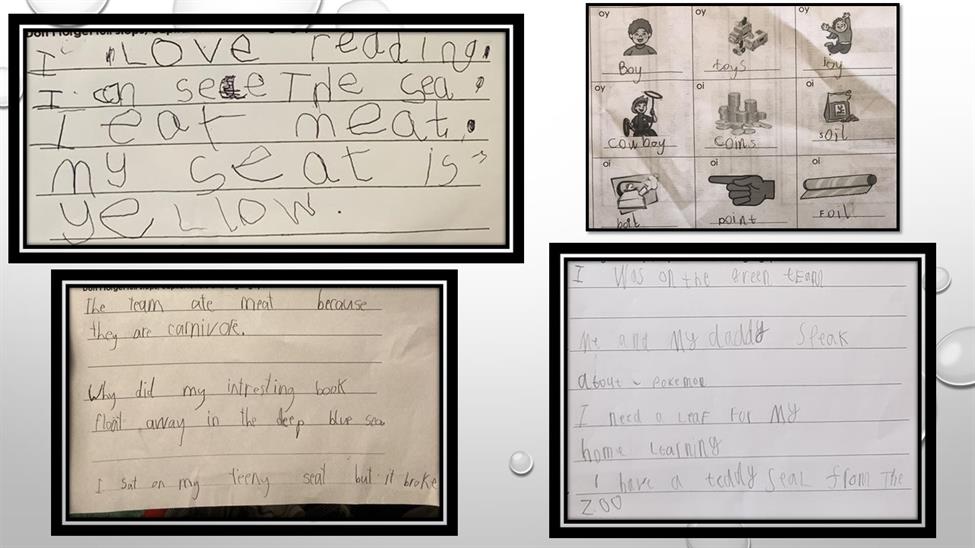 Don't forget full stops,
I LOVE reading.
I can see The sea.
I eat meat.
my seat is
yellow.
oy oy oy
Boy toys joy
oy oi oi
cowboy coins soil
oi oi oi
boil point Foil
The team ate meat because
they are carnivore.
Why did my intresting book
float away in the deep blue sea
I sat on my teeny seat but it broke
I was on the green team
Me and My daddy Speak
about Pokemon
I need a Leaf For My
home Learning
I have a teddy Seal from The
zoo